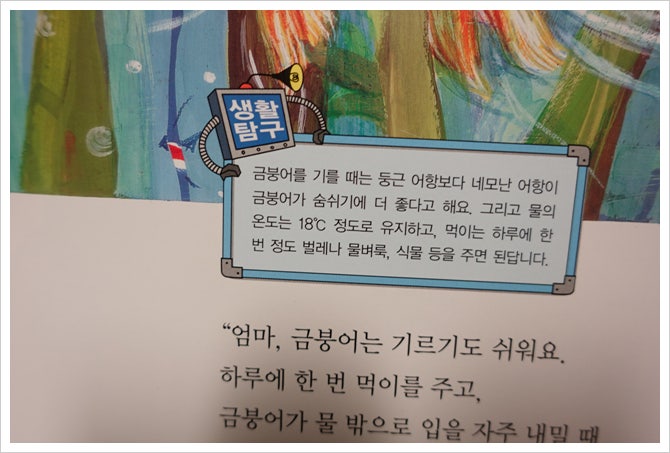 생활
탐구
금붕어를 기를 때는 둥근 어항보다 네모난 어항이
금붕어가 숨쉬기에 더 좋다고 해요. 그리고 물의
온도는 18℃ 정도로 유지하고, 먹이는 하루에 한
번 정도 벌레나 물벼룩, 식물 등을 주면 된답니다.
“엄마, 금붕어는 기르기도 쉬워요.
하루에 한 번 먹이를 주고,
금붕어가 물 밖으로 입을 자주 내밀 때